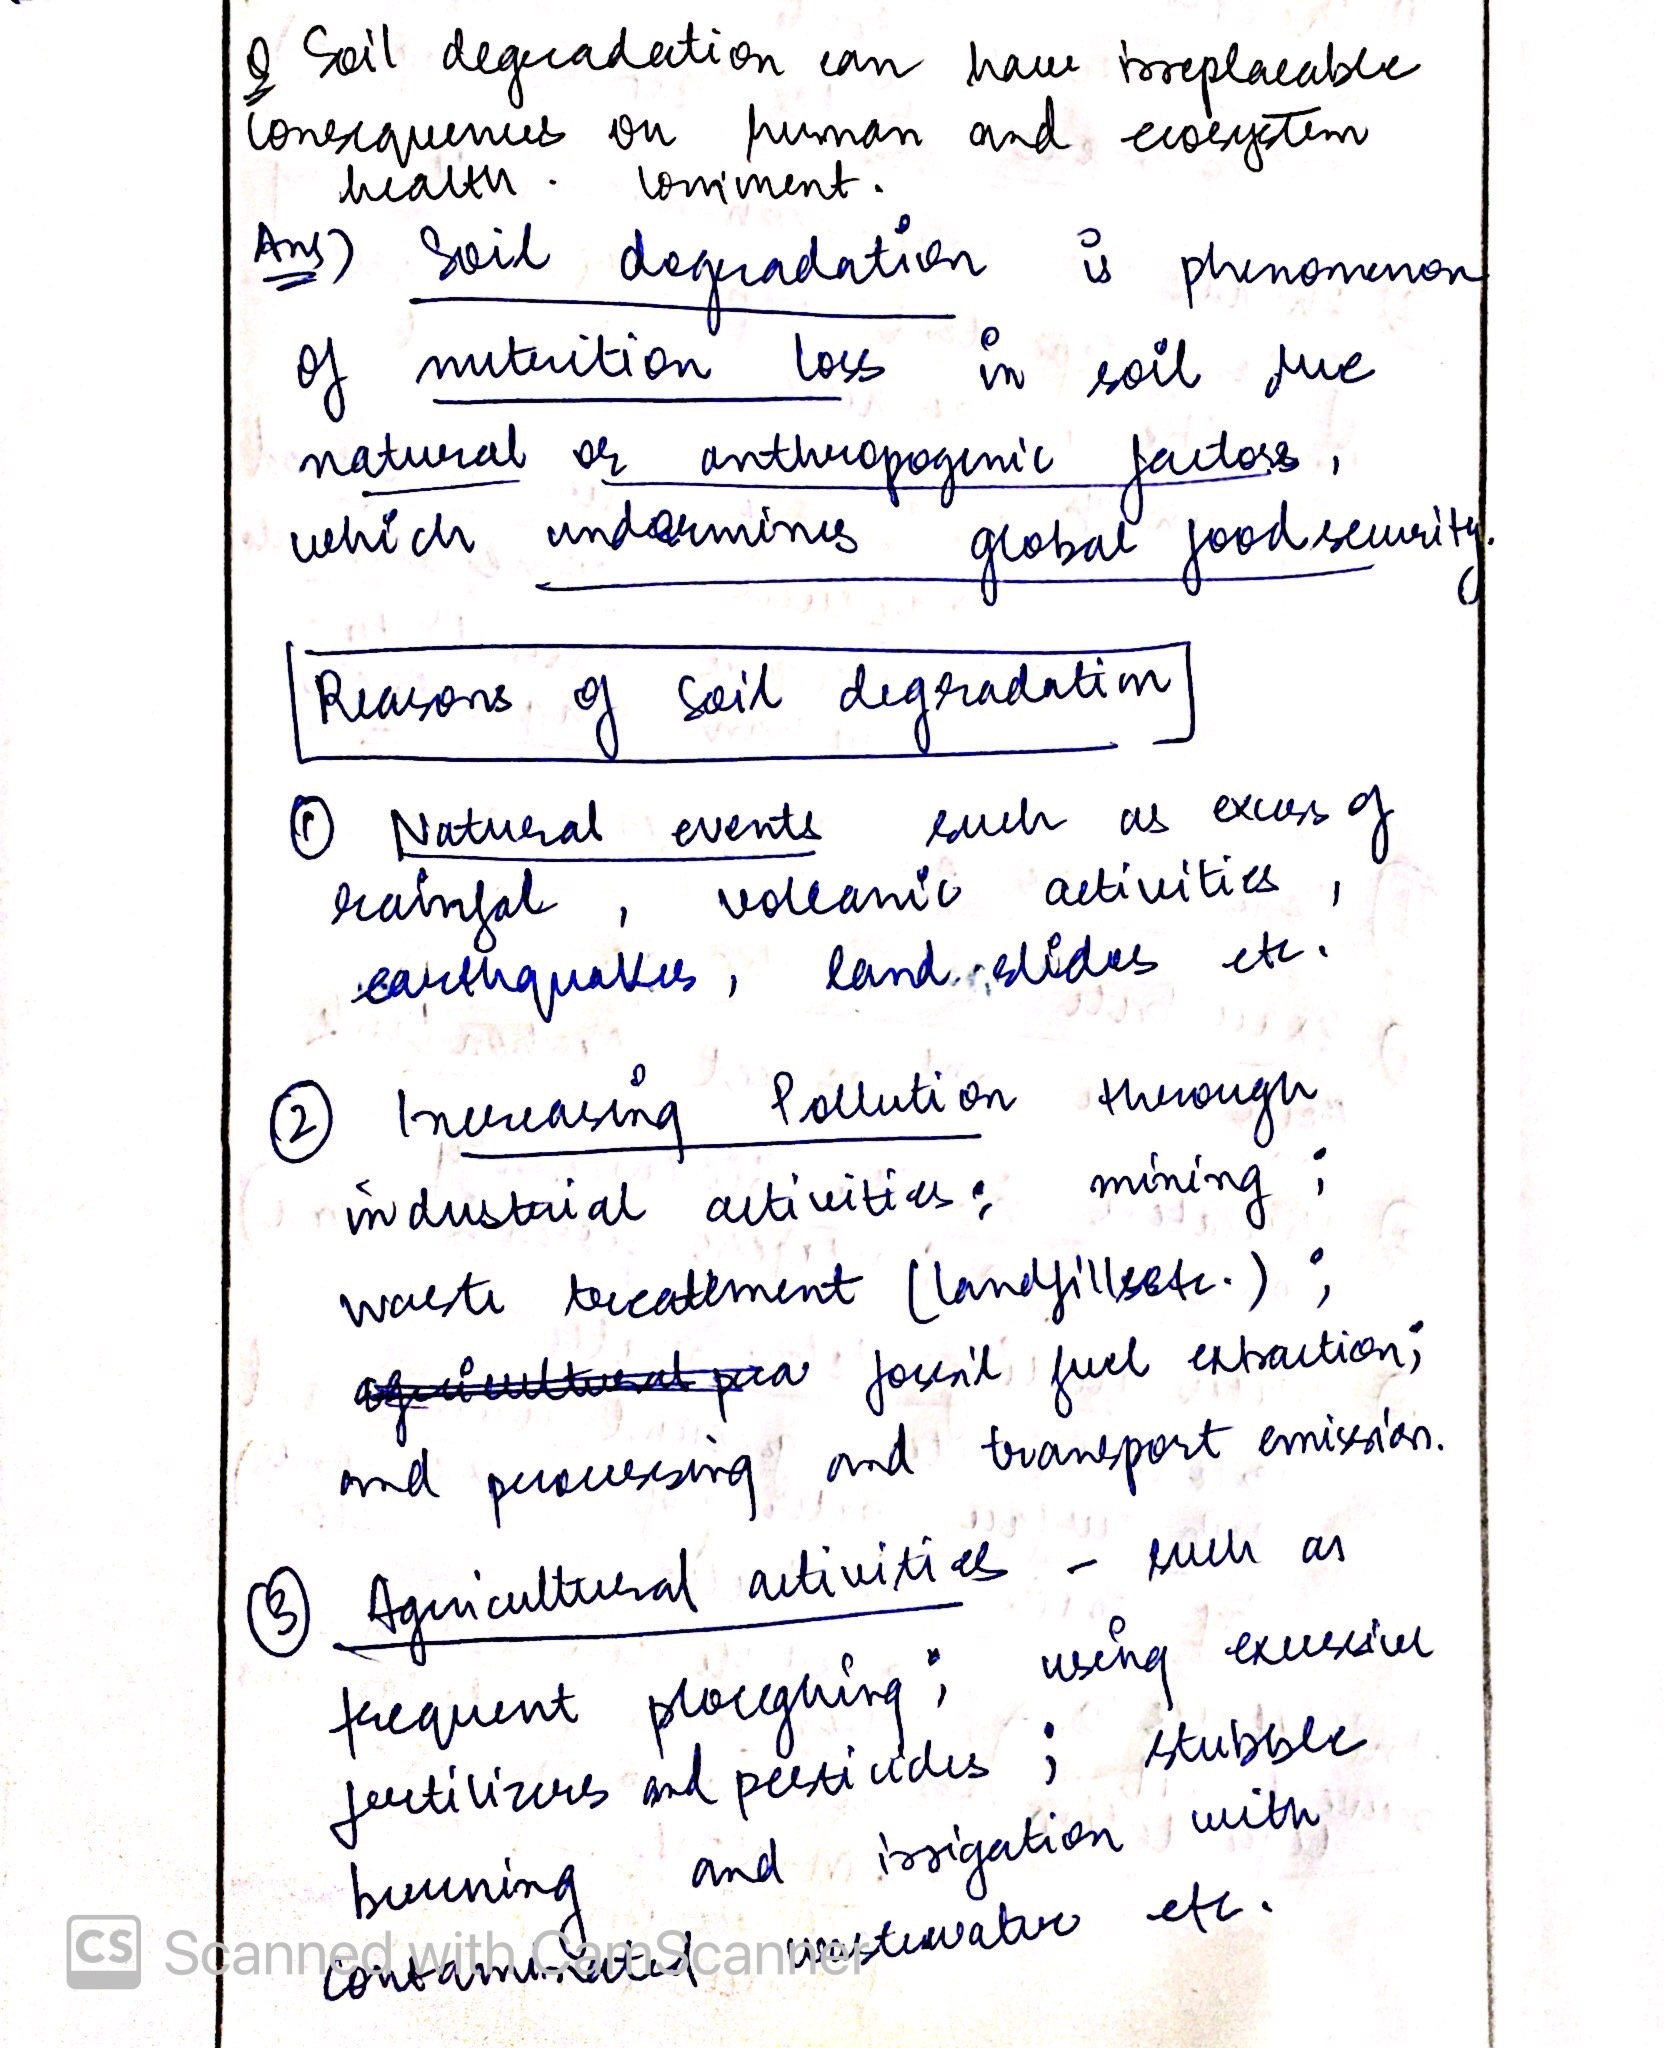 Q Soil degradation can have irreplaceable
consequences on human and ecosystem
health. Comment.
Ans) Soil degradation is phenomenon
of nutrition loss in soil due
natural or anthropogenic factors,
which undermines global food security.
Reasons of Soil degradation
① Natural events such as excess of
rainfal, volcanic activities,
earthquakes, land slides etc.
② Increasing Pollution through
industrial activities; mining;
waste treatment (landfills etc.);
fossil fuel extraction;
and processing and transport emission.
③ Agricultural activities - such as
frequent ploughing; using excessive
fertilizers and pesticides; stubble
burning and irrigation with
contaminated wastewater etc.
CS Scanned with CamScanner